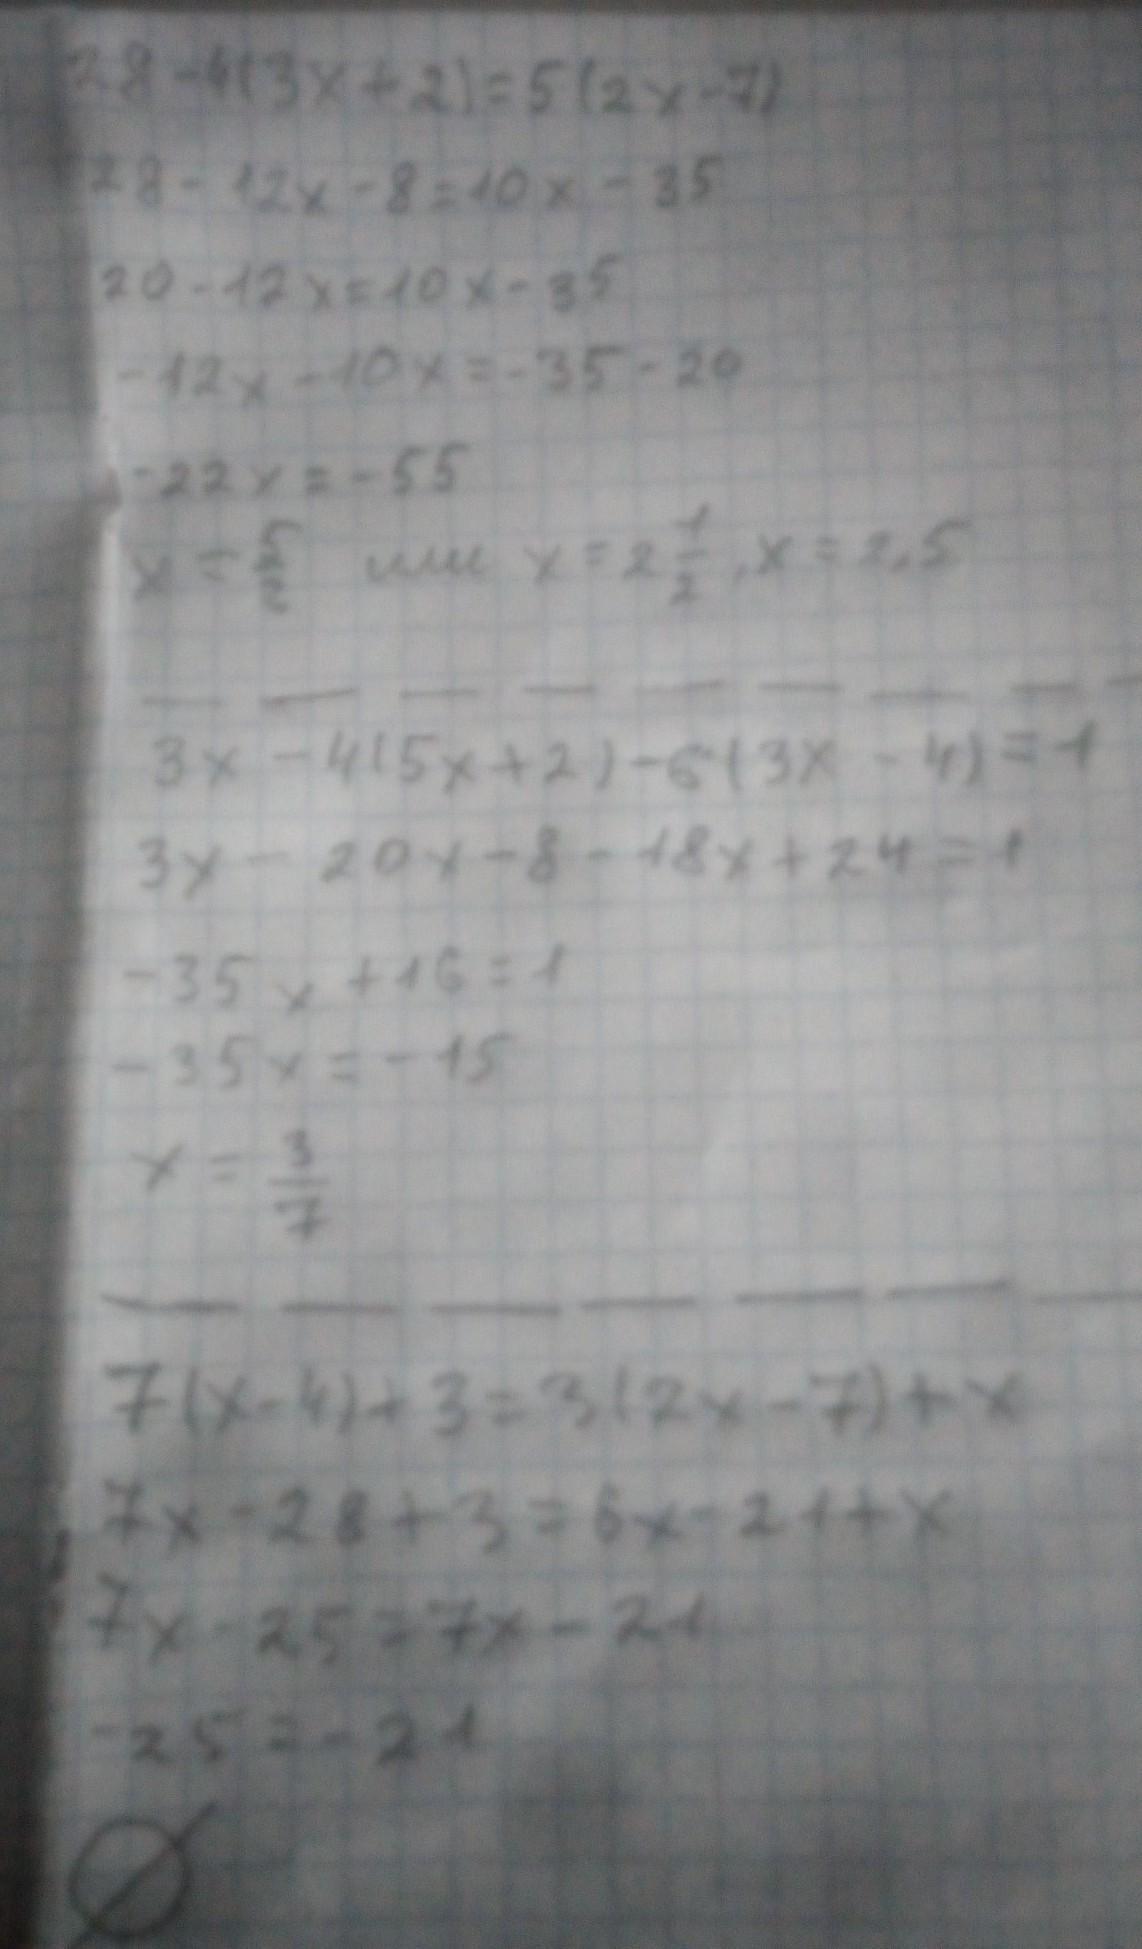 28-4(3x+2)=5(2x-7)
28-12x-8=10x-35
20-12x=10x-35
-12x-10x=-35-20
-22x=-55
x=5/2 или x=2 1/2, x=2,5
3x-4(5x+2)-6(3x-4)=1
3x-20x-8-18x+24=1
-35x+16=1
-35x=-15
x=3/7
7(x-4)+3=3(2x-7)+x
7x-28+3=6x-21+x
7x-25=7x-21
-25=-21
∅